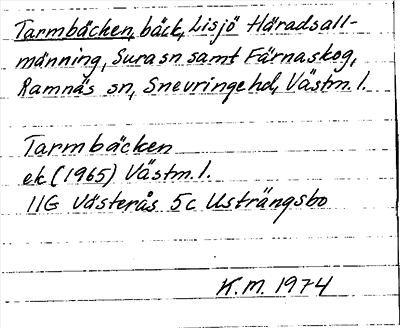 Tarmbäcken, bäck, Lisjö Häradsall-
männing, Sura sn samt Färnaskog,
Ramnäs sn, Snevringe hd, Västm. l.
Tarmbäcken
ek (1965) Västm. l.
11G Västerås 5c Usträngsbo
K.M. 1974